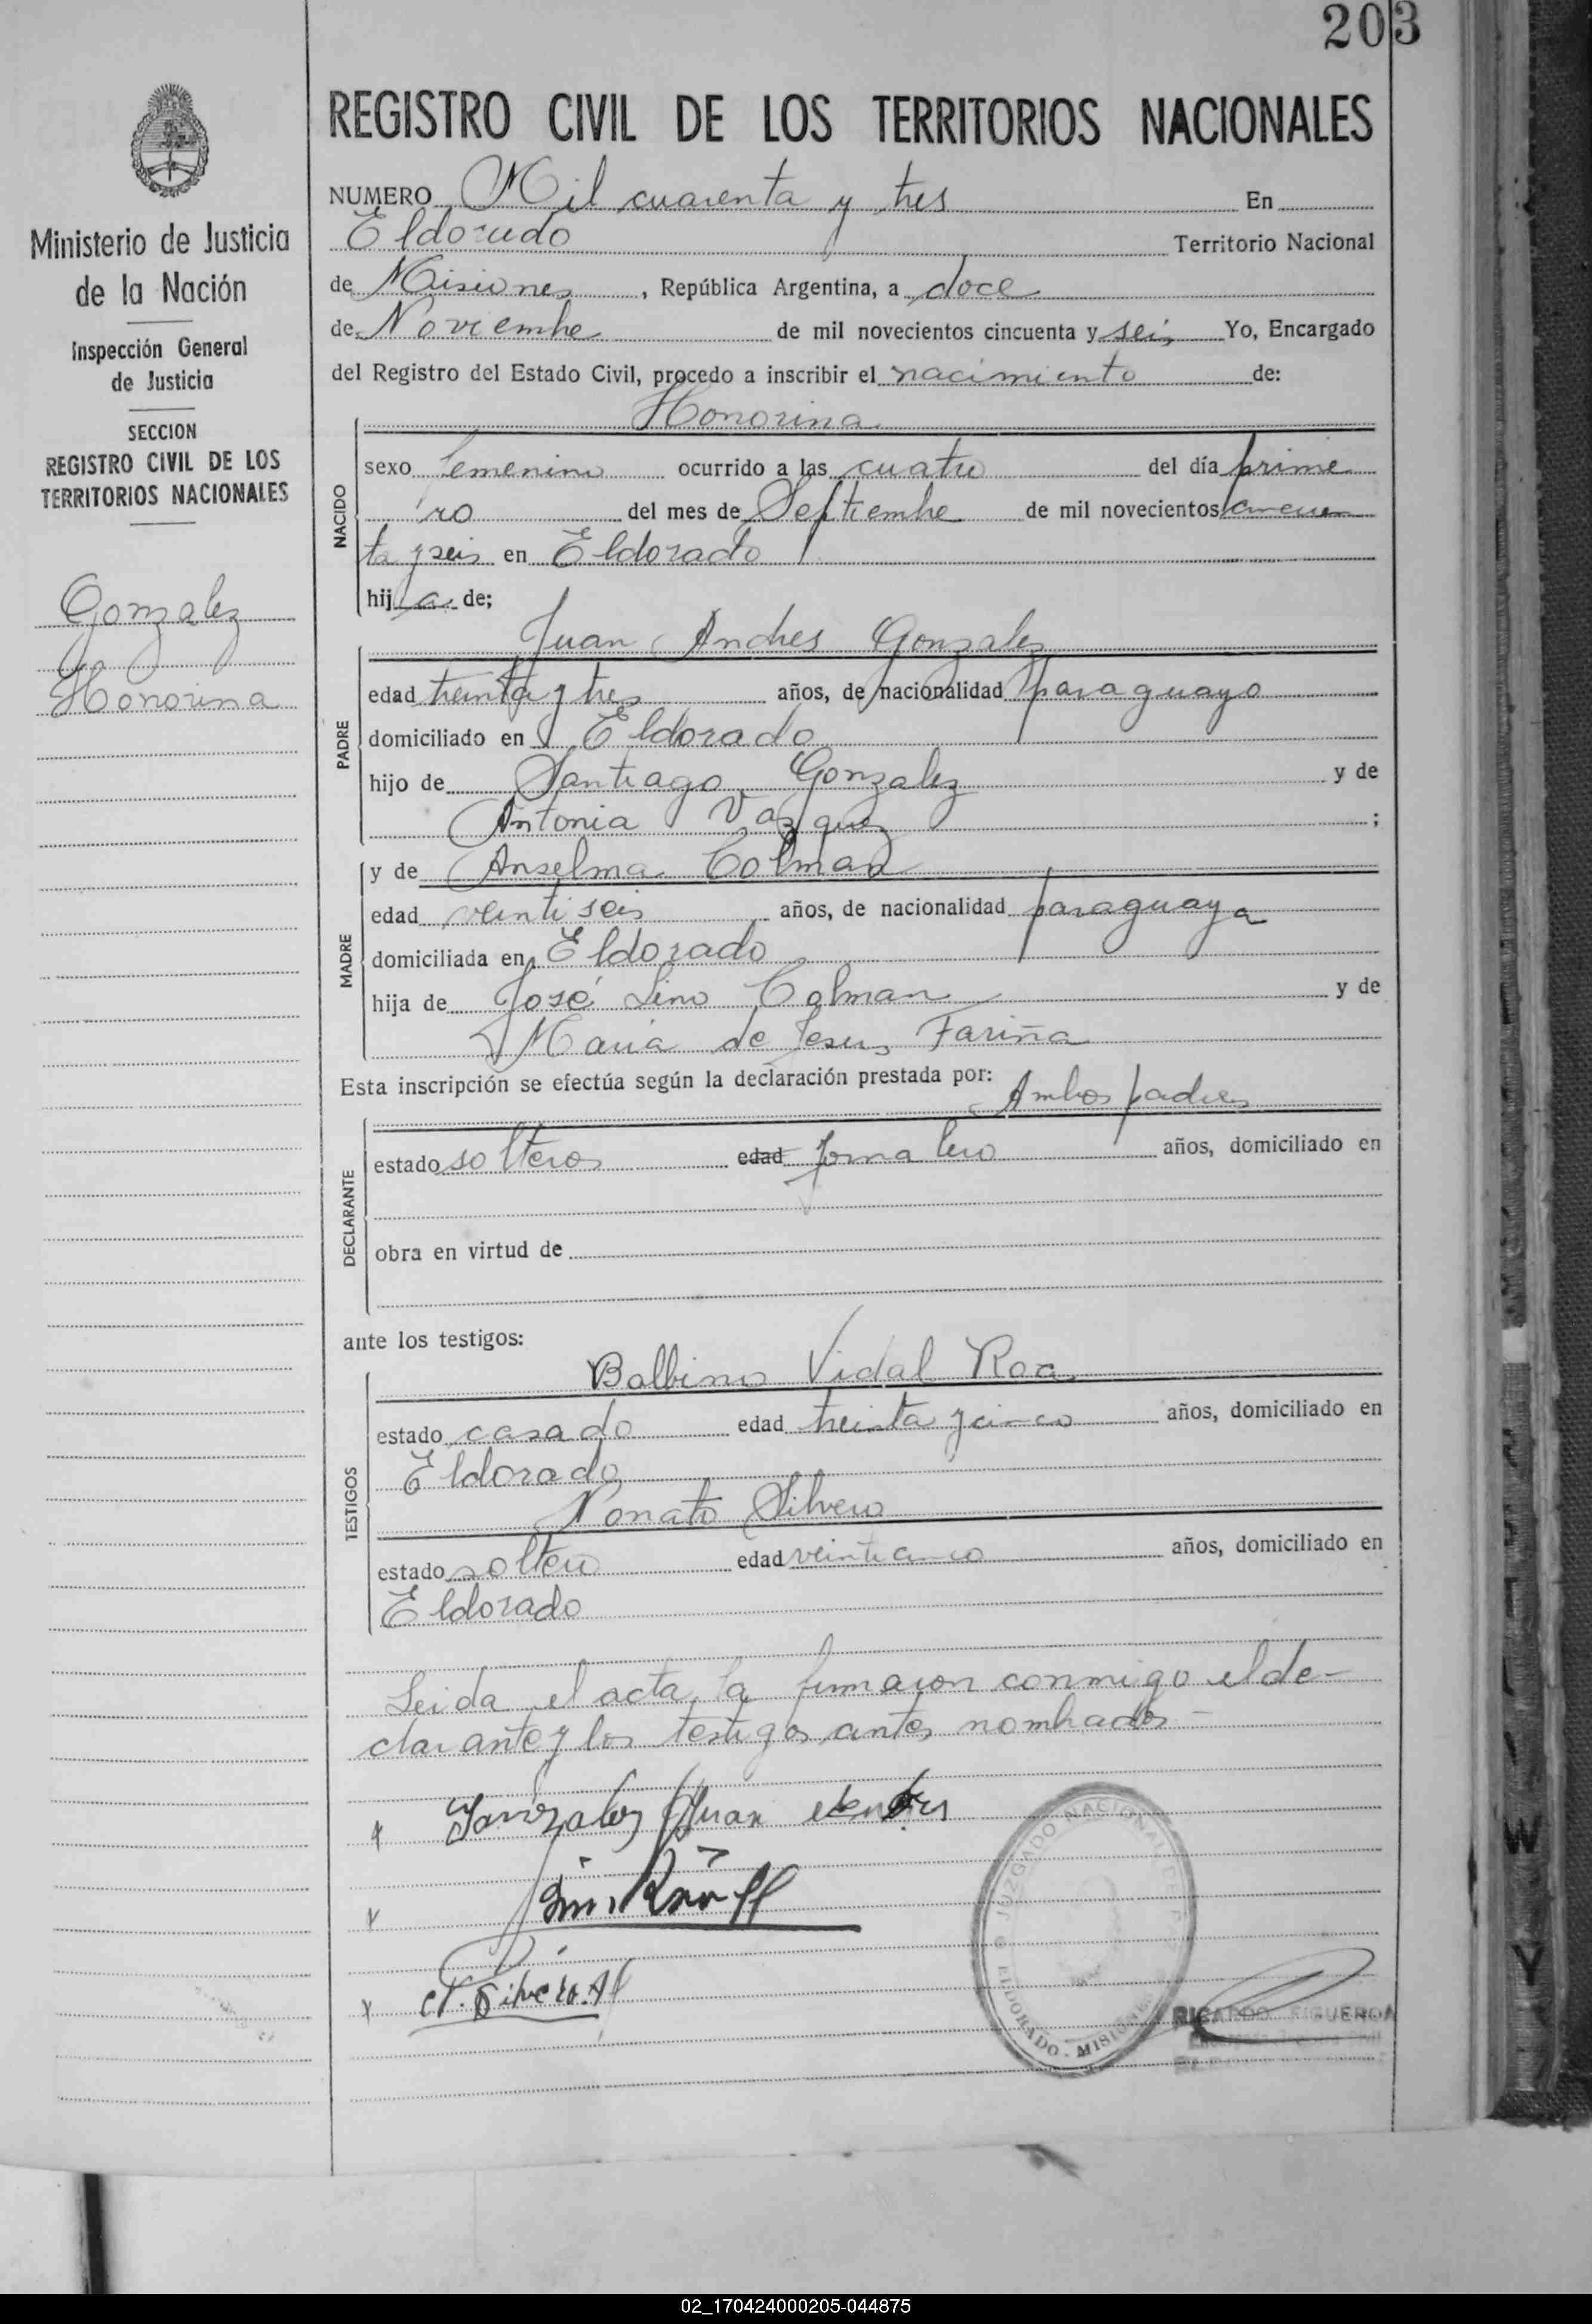 203
Ministerio de Justicia
de la Nación
Inspección General
de Justicia
SECCION
REGISTRO CIVIL DE LOS
TERRITORIOS NACIONALES
Gonzalez
Honorina
REGISTRO CIVIL DE LOS TERRITORIOS NACIONALES
NUMERO Mil cuarenta y tres En
Eldorado Territorio Nacional
de Misiones, República Argentina, a doce
de Noviembre de mil novecientos cincuenta y seis Yo, Encargado
del Registro del Estado Civil, procedo a inscribir el nacimiento de:
Honorina
NACIDO
sexo femenino ocurrido a las cuatro del día prime
ro del mes de Septiembre de mil novecientos cincuen
ta y seis en Eldorado
hija de;
Juan Andres Gonzalez
PADRE
edad treinta y tres años, de nacionalidad paraguayo
domiciliado en Eldorado
hijo de Santiago Gonzalez y de
Antonia Vazquez ;
MADRE
y de Anselma Colman
edad veintiseis años, de nacionalidad paraguaya
domiciliada en Eldorado
hija de José Lino Colman y de
Maria de Jesus Fariña
Esta inscripción se efectúa según la declaración prestada por:
Ambos padres
DECLARANTE
estado solteros edad jornalero años, domiciliado en
obra en virtud de
ante los testigos:
Balbino Vidal Roa
TESTIGOS
estado casado edad treinta y cinco años, domiciliado en
Eldorado
Nonato Silvero
estado soltero edad veinticinco años, domiciliado en
Eldorado
Leida el acta, la firmaron conmigo el de-
clarante y los testigos antes nombrados-
Gonzalez Juan Andres
N. Silvero. A
JUZGADO NACIONAL DE PAZ
ELDORADO - MISIONES
RICARDO FIGUEROA
02_170424000205-044875